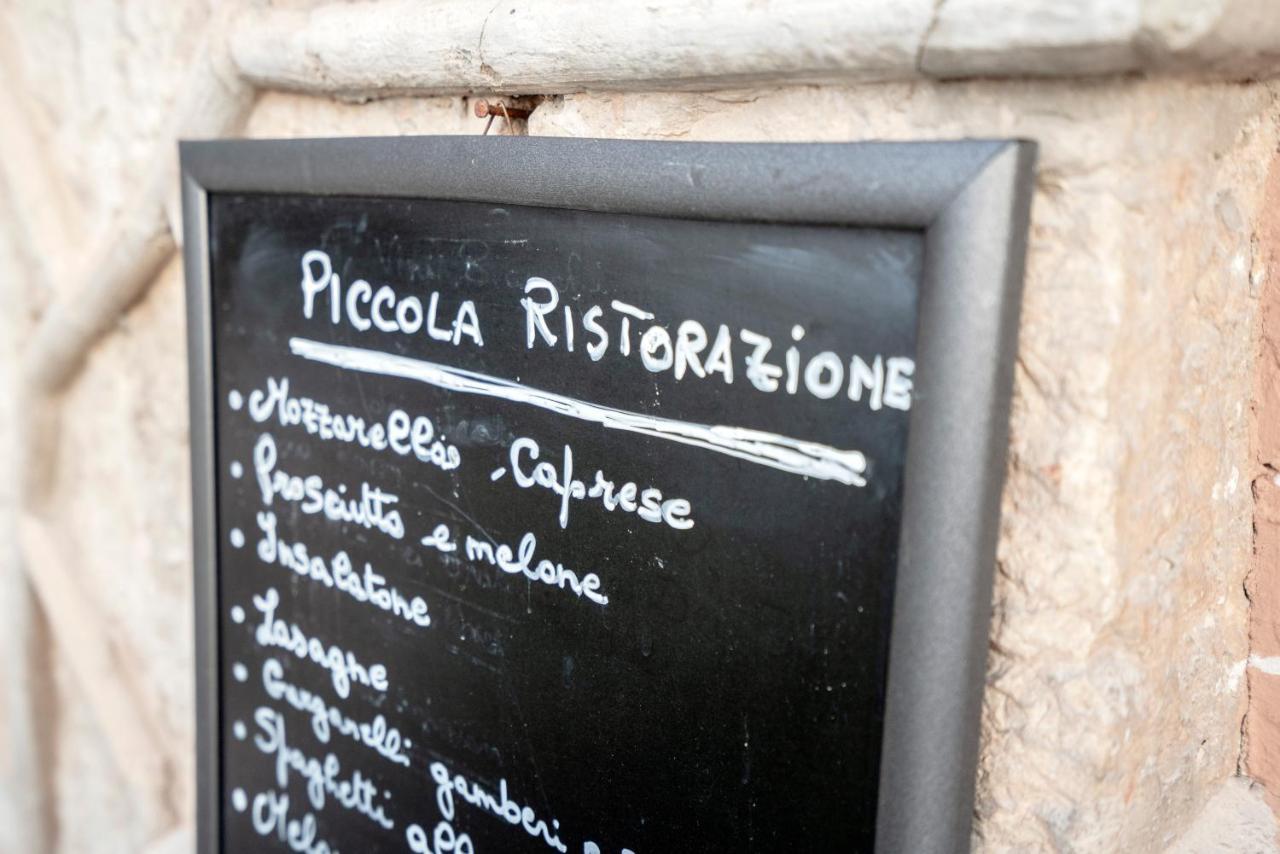 PICCOLA RISTORAZIONE
• Mozzarella, Caprese
• Prosciutto e melone
• Insalatone
• Lasagne
• Garganelli gamberi e
• Spaghetti all